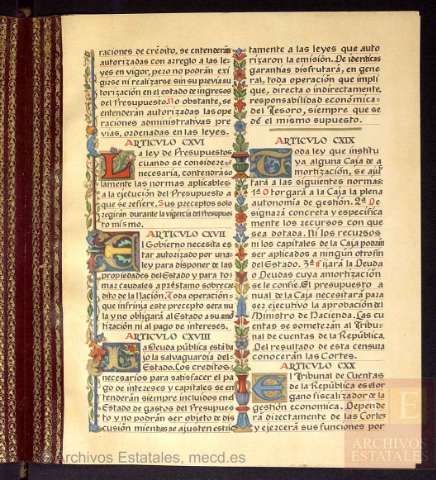 raciones de crédito, se entenderán
autorizadas con arreglo a las le
yes en vigor, pero no podrán exi
girse ni realizarse sin su previa au
torización en el estado de ingresos
del Presupuesto. No obstante, se
entenderán autorizadas las ope
raciones administrativas pre
vias, ordenadas en las leyes.
ARTICULO CXVI
La ley de Presupuestos
cuando se considere
necesaria, contendrá so
lamente las normas aplicables
a la ejecución del Presupuesto a
que se refiere. Sus preceptos solo
regirán durante la vigencia del Presupues
to mismo.
ARTICULO CXVII
El Gobierno necesita es
tar autorizado por una
ley para disponer de las
propiedades del Estado y para to
mar caudales a préstamo sobre cré
dito de la Nación. Toda operación
que infrinja este precepto será nu
la y no obligará al Estado a su amor
tización ni al pago de intereses.
ARTICULO CXVIII
La Deuda pública está ba
jo la salvaguardia del
Estado. Los créditos
necesarios para satisfacer el pa
go de intereses y capitales se en
tenderán siempre incluidos en el
Estado de gastos del Presupuesto
y no podrán ser objeto de dis
cusión mientras se ajusten estric
tamente a las leyes que auto
rizaron la emisión. De idénticas
garantías disfrutará, en gene
ral, toda operación que impli
que, directa o indirectamente,
responsabilidad económica
del Tesoro, siempre que se
dé el mismo supuesto.
ARTICULO CXIX
Toda ley que institu
ya alguna Caja de a
mortización, se ajus
tará a las siguientes normas:
1ª Otorgará a la Caja la plena
autonomía de gestión. 2ª De
signará concreta y específica
mente los recursos con que
sea dotada. Ni los recursos
ni los capitales de la Caja podrán
ser aplicados a ningún otro fin
del Estado. 3ª Fijará la Deuda
o Deudas cuya amortización
se le confíe. El presupuesto a
nual de la Caja necesitará para
ser ejecutivo la aprobación del
Ministro de Hacienda. Las cu
entas se someterán al Tribu
nal de cuentas de la República.
Del resultado de esta censura
conocerán las Cortes.
ARTICULO CXX
El Tribunal de Cuentas
de la República es el or
gano fiscalizador de la
gestión económica. Depende
rá directamente de las Cortes
y ejercerá sus funciones por
© Archivos Estatales, mecd.es
E
ARCHIVOS
ESTATALES